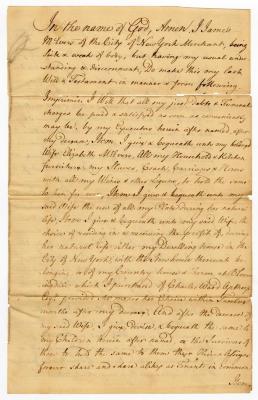 In the name of God, Amen I James
M:Evers of the City of New York Merchant, being
sick & weak of body, but having my usual under
standing & discernment, Do make this my Last
Will & Testament in manner & form following
Imprimis, I Will that all my just Debts & Funeral
charges be paid & satisfied as soon as conveniently
may be, by my Executors herein after named after
my decease, Item, I give & bequeath unto my beloved
Wife Elizabeth M:Evers, All my Household & Kitchen
furniture, my Slaves, Coach, Carriages & Horses
with all my Wines & other Liquors, to hold the same
to her for ever, Item I give & bequeath unto my
said Wife the use of all my Plate during her natural
life, Item I give & bequeath unto my said Wife, the
choice of residing in or receiving the profits of, during
her natural life either my Dwelling House in the
City of New York with the thereunto be
longing, or of my Country house & Farm at Bloom
ingdale which I purchased of Charles Ward Apthorp
Esq:, provided she makes her Choice within
months after my decease, And after the Decease of
my said Wife, I give Devise & bequeath the same to
my Children herein after named or the Survivors of
them to hold the same to them their Heirs & Assigns
forever share and share alike as tenants in common
Item